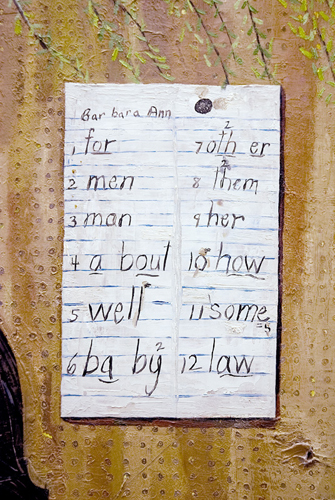 Barbara Ann
1 for
2 men
3 man
4 a bout
5 well
6 ba by 2
7 oth er 2
8 them 2
9 her
10 how
11 some =5
12 law